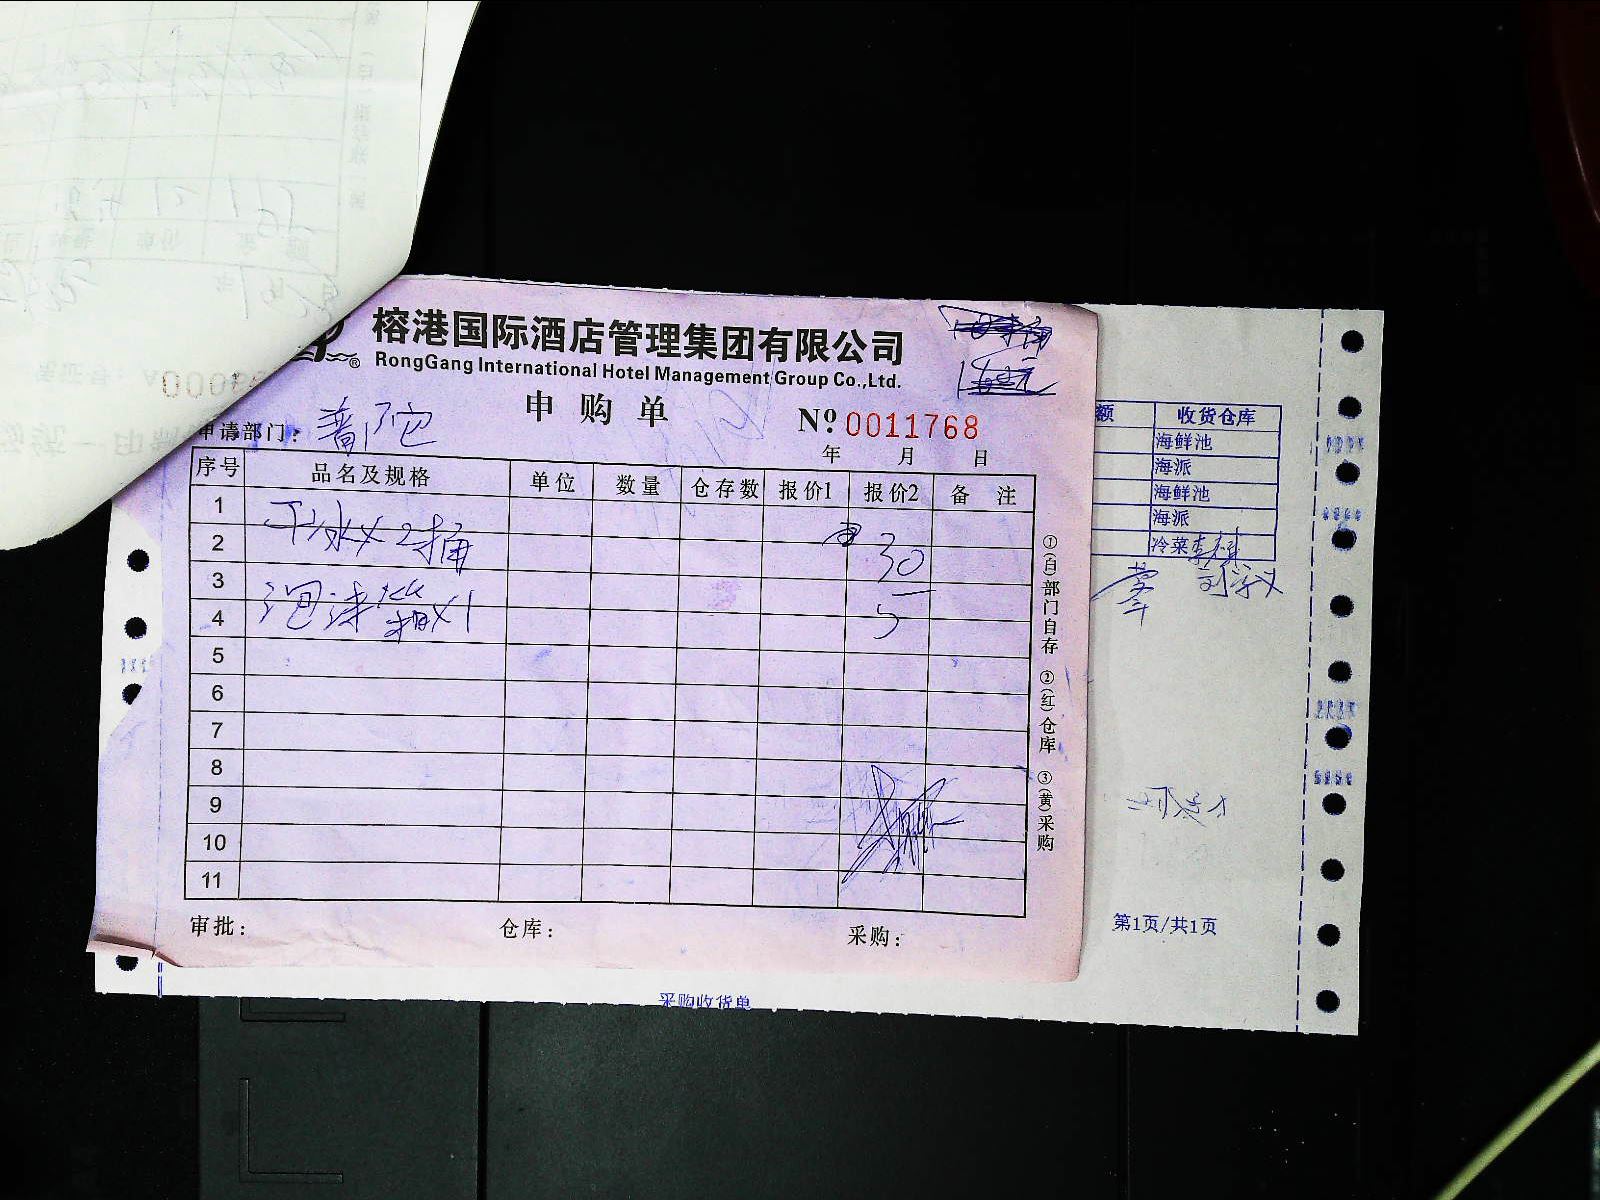 榕港国际酒店管理集团有限公司
RongGang International Hotel Management Group Co.,Ltd.
申购单
№ 0011768
申请部门: 普陀
年 月 日
序号 品名及规格 单位 数量 仓存数 报价1 报价2 备 注
1
2 干冰×2桶 30
3
4 泡沫箱×1 5
5
6
7
8
9
10
11
审批: 仓库: 采购:
①(白)部门自存 ②(红)仓库 ③(黄)采购
额 收货仓库
海鲜池
海派
海鲜池
海派
冷菜
第1页/共1页
采购收货单